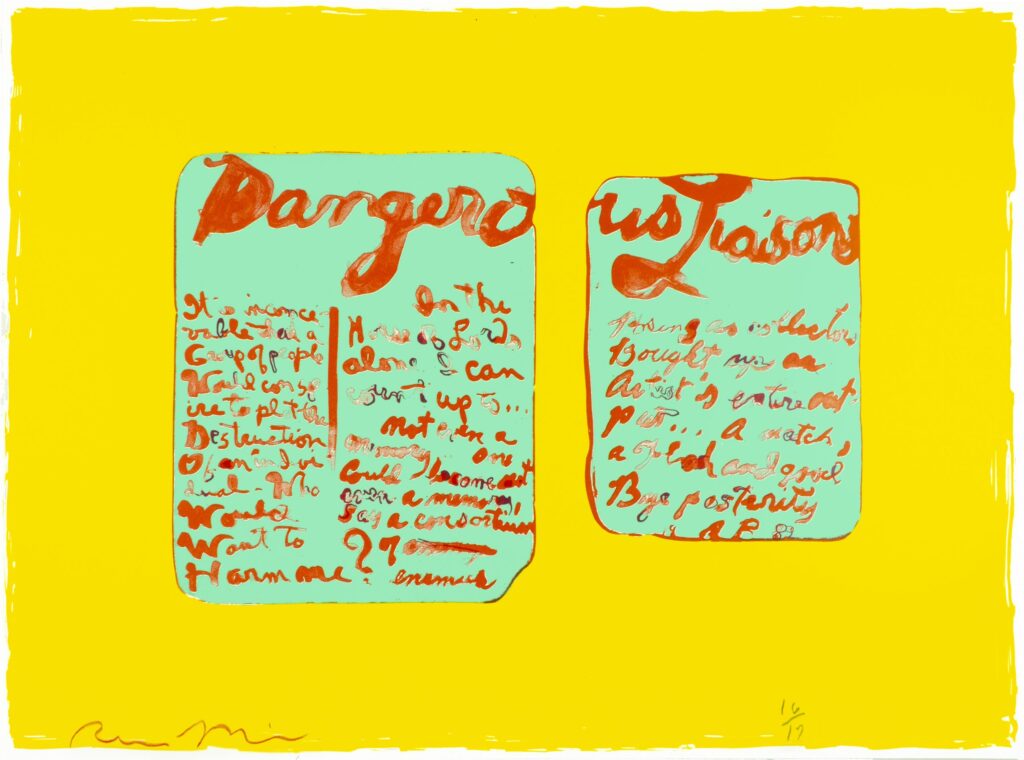 Dangero
It is inconce-
vable that a
Group of people
Would consp
ire to plot the
Destruction
Of an indivi
dual - Who
Would
Want to
Harm me?
In the
House of Lords
alone I can
count up to...
Not even a
memory. One
Could become not
even a memory,
Say a consortium
? of
enemies
us Liaisons
Posing as collectors
Bought up an
Artist's entire out-
put... A match,
a and good
Bye posterity